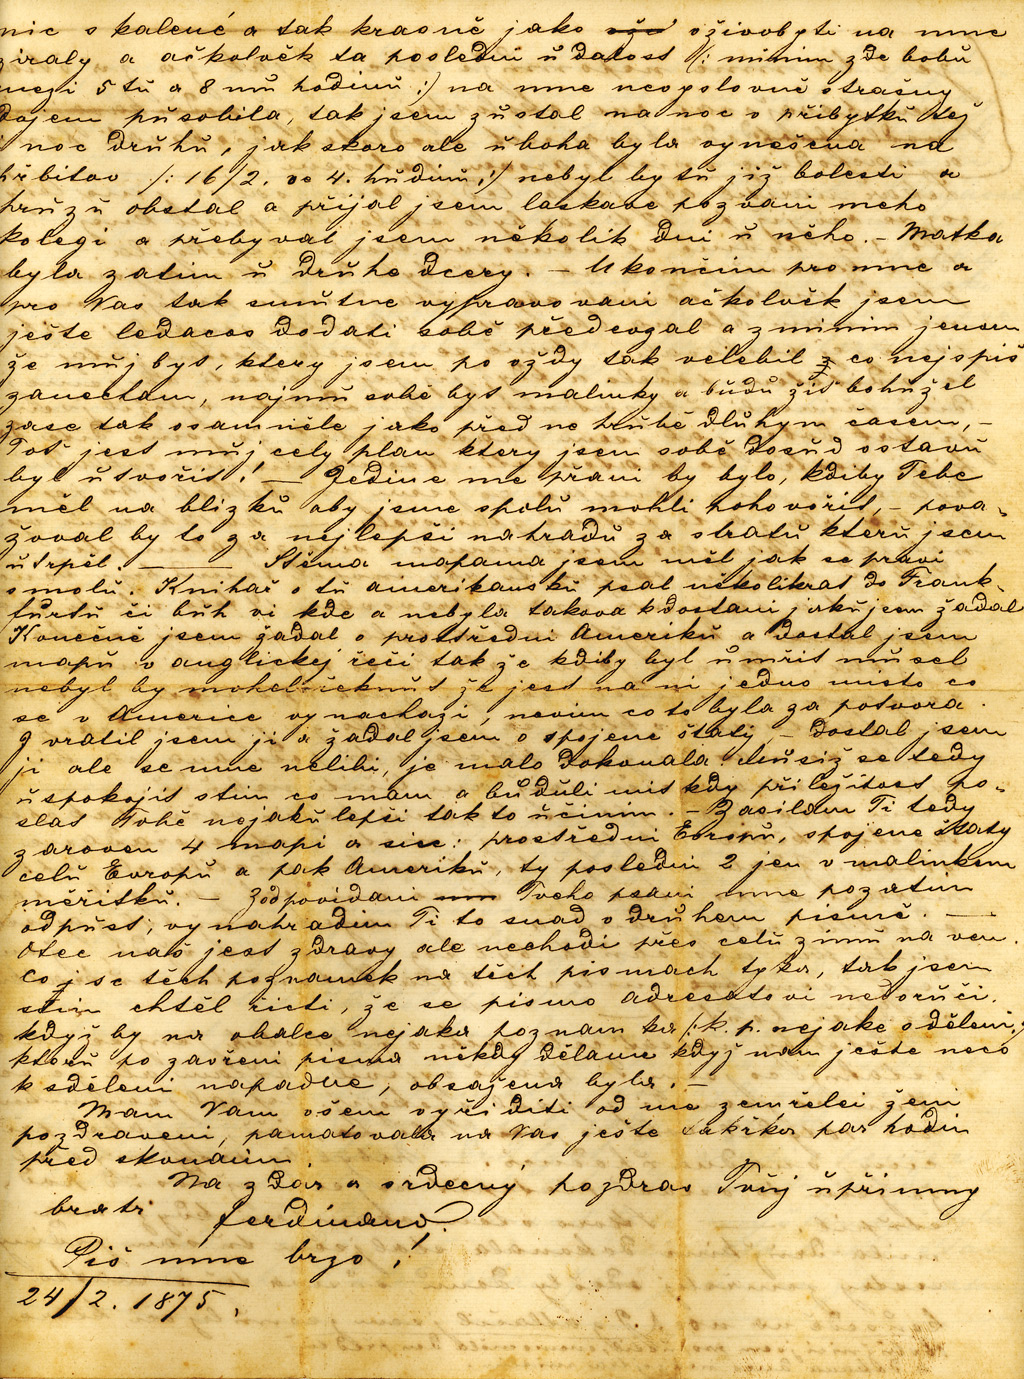 nic skalené a tak krasně jako oživobyti na mne
ziraly a ačkolvěk ta posledni ůdalost /: minim zde dobů
mezi 5tů a 8mů hodinů :/ na mne neopslovně strašny
dojem působila, tak jsem zůstal na noc v přibytků též
i noc drůhů, jak skoro ale ůboha byla vynešena na
hřbitov /: 16/2. ve 4. hůdinů :/ nebyl by tů již bolesti a
hrůzů obstal a přijal jsem laskave pozvani meho
kolegi a přebyval jsem několik dni ů něho. – Matka
byla zatim ů drůhe dcery. – Ukončim pro mne a
pro Vas tak smůtne vypravovani ačkolvěk jsem
ješte ledacos dodati sobě předevzal a zminim jensem
že můj byt, ktery jsem po vždy tak velebil co nejspiš
zanecham, najmů sobě byt malinky a bůdů žit bohůžel
zase tak osamněle jako před ne hrůbě dlůhym časem, –
Toť jest můj cely plan ktery jsem sobě dosůd ostavů
byl ůtvořit! – Jedine me přani by bylo, kdiby Tebe
měl na blizků aby jsme spolů mohli pohovořit, – pova-
žoval by to za nejlepši nahradů za stratů kterů jsem
ůtrpěl. — Stěma mapama jsem měl jak se pravi
smolů. Knihař o tů amerikansků psal několikrat do Frank-
fůrtů či bůh vi kde a nebyla takova kdostani jaků jsem žadal
Konečně jsem žadal o prostředni Ameriků a dostal jsem
mapů v anglickej řeči tak že kdiby byl ůmřit můsel
nebyl by mohel řeknůt že jest na ni jedno misto co
se v Americe vynachazi, nevim co to byla za potvora.
I vratil jsem ji a žadal jsem o spojene štaty, – dostal jsem
ji ale se mne nelibi, je malo dokonala. Můsiž se tedy
ůspokojit stim co mam a bůdůli mit kdy přiležitost po-
slat Tobě nejaků lepši tak to ůčinim. – Zasilam Ti tedy
zaroven 4 mapi a sice: prostředni Evropů, spojene štaty
celů Evropů a pak Ameriků, ty posledni 2 jen v malinkem
měřitků. – Zodpovidani Tveho psani mne pozatim
odpůst, vynahradim Ti to snad v drůhem pismě. —
Otec naš jest zdravy ale nechodi přes celů zimů na ven.
Co jse těch poznamek na těch pismach tyka, tak jsem
stim chtěl řicti, že se pismo adresatovi nedorůči.
když by na obalce nejaka poznamka /: k. p. nejake sděleni :/
kterů po zavřeni pisma někdy dělame když nam ješte neco
k sděleni napadne, obsažena byla. –
Mam Vam ošem vyřiditi od me zemřelei ženi
pozdraveni, pamatovala na Vas ješte takřka par hodin
před skonanim.
Na zdar a srdečný pozdrav Tvůj ůpřimny
bratr Ferdinand.
Piš mne brzo!
24/2. 1875.